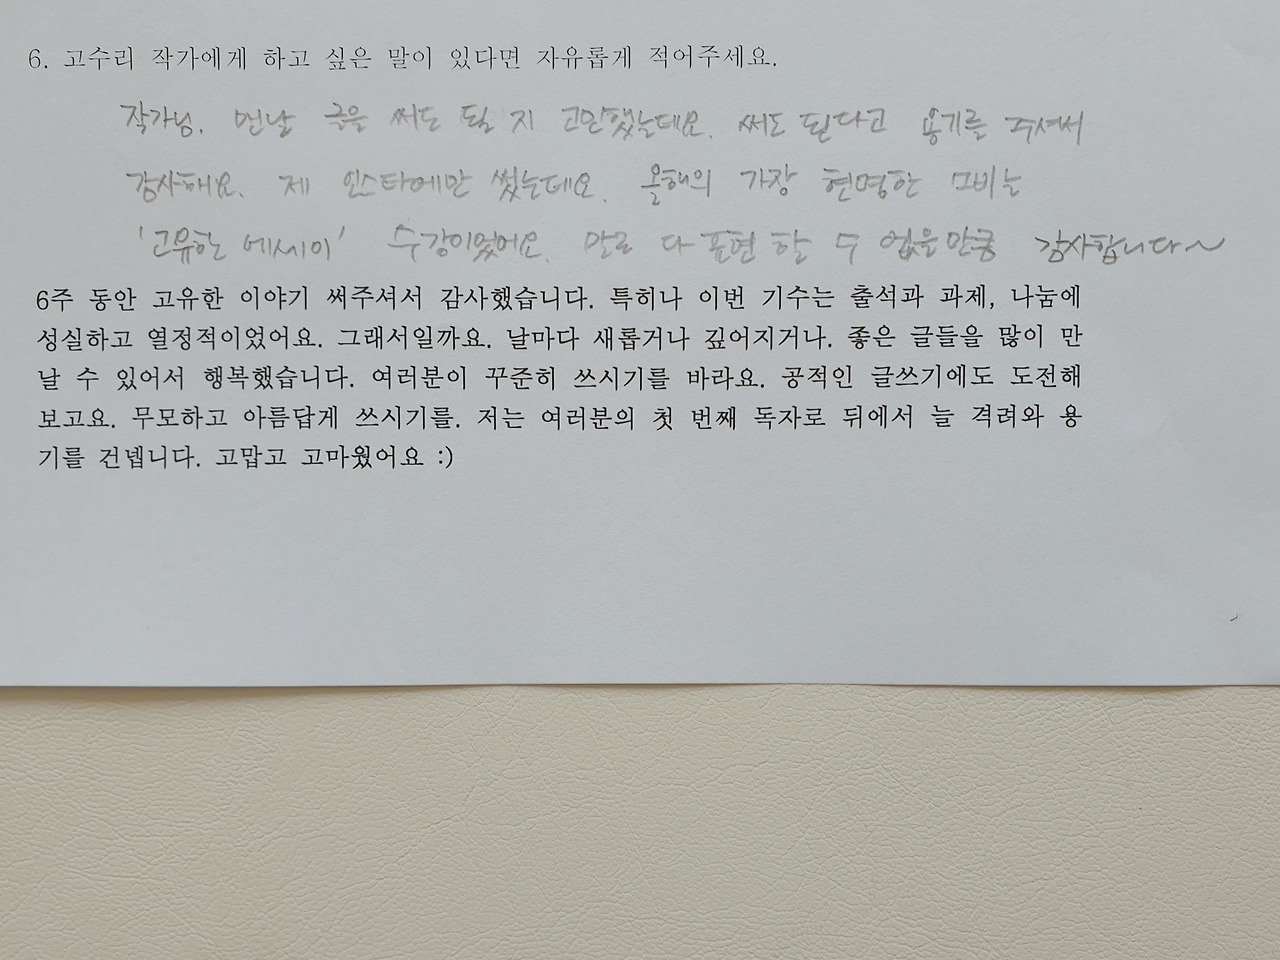 6. 고수리 작가에게 하고 싶은 말이 있다면 자유롭게 적어주세요.
작가님. 맨날 글을 써도 될 지 고민했는데요. 써도 된다고 용기를 주셔서
감사해요. 제 인스타에만 썼는데요. 올해의 가장 현명한 소비는
'고유한 에세이' 수강이었어요. 말로 다 표현 할 수 없을만큼 감사합니다~
6주 동안 고유한 이야기 써주셔서 감사했습니다. 특히나 이번 기수는 출석과 과제, 나눔에
성실하고 열정적이었어요. 그래서일까요. 날마다 새롭거나 깊어지거나. 좋은 글들을 많이 만
날 수 있어서 행복했습니다. 여러분이 꾸준히 쓰시기를 바라요. 공적인 글쓰기에도 도전해
보고요. 무모하고 아름답게 쓰시기를. 저는 여러분의 첫 번째 독자로 뒤에서 늘 격려와 용
기를 건넵니다. 고맙고 고마웠어요 :)